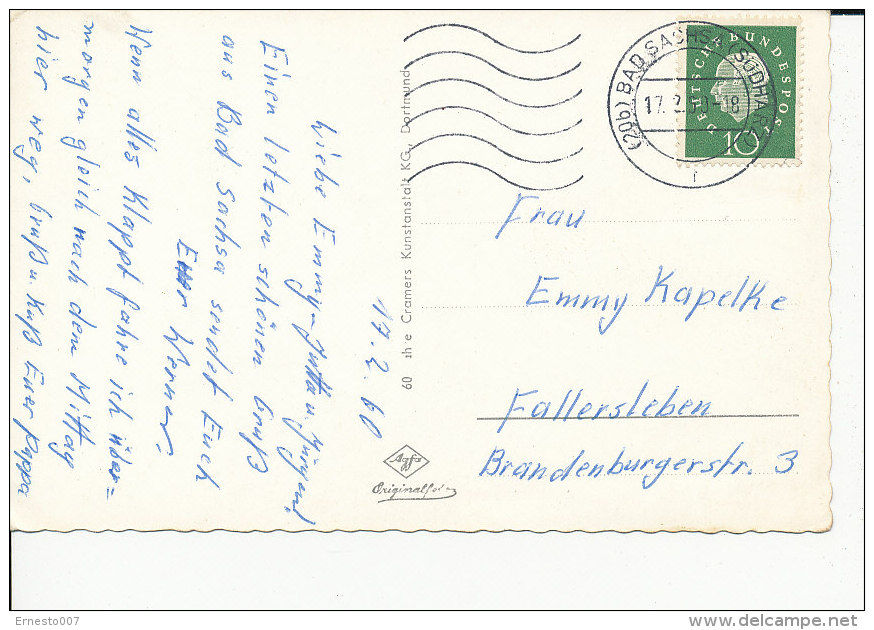 17.2.60
Liebe Emmy – Jutta u. Jürgen!
Einen letzten schönen Gruß
aus Bad Sachsa sendet Euch
Euer Werner.
Wenn alles klappt fahre ich über=
morgen gleich nach dem Mittag
hier weg, Gruß u. Kuß Euer Pappa
60 Cramers Kunstanstalt KG., Dortmund
Agfa
(20b) BAD SACHSA (SÜDHARZ)
DEUTSCHE BUNDESPOST
10
Frau
Emmy Kapelke
Fallersleben
Brandenburgerstr. 3
Ernesto007
delcampe.net